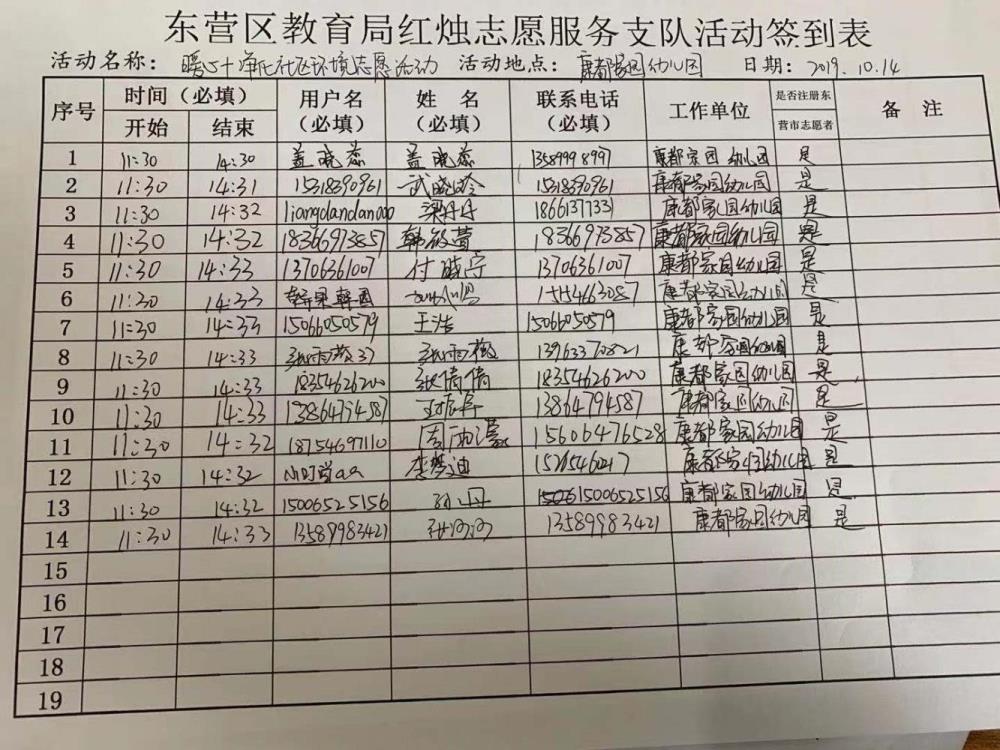 东营区教育局红烛志愿服务支队活动签到表
活动名称： 暖冬十净化社区环境志愿活动 活动地点： 康都家园幼儿园 日期： 2019.10.14
序号 时间（必填） 开始 结束 用户名（必填） 姓 名（必填） 联系电话（必填） 工作单位 是否注册东营市志愿者 备 注
1 11:30 14:30 盖晓蕊 盖晓蕊 13589998997 康都家园幼儿园 是
2 11:30 14:31 15318390961 武晓玲 15318390961 康都家园幼儿园 是
3 11:30 14:32 liangdandan000 梁丹丹 1866137733 康都家园幼儿园 是
4 11:30 14:32 18366973857 韩筱萱 18366973857 康都家园幼儿园 是
5 11:30 14:33 13706361007 付晓宁 13706361007 康都家园幼儿园 是
6 11:30 14:33 15154663087 康都家园幼儿园 是
7 11:30 14:33 15066050579 王洁 15066050579 康都家园幼儿园 是
8 11:30 14:33 张雨薇37 张雨薇 13963370821 康都家园幼儿园 是
9 11:30 14:33 18354626200 张倩倩 18354626200 康都家园幼儿园 是
10 11:30 14:33 13864794587 13864794587 康都家园幼儿园 是
11 11:30 14:32 18754697110 周雨濛 15606476528 康都家园幼儿园 是
12 11:30 14:32 李梦迪 15215460217 康都家园幼儿园 是
13 11:30 14:32 15006525156 孙丹 15006525156 康都家园幼儿园 是
14 11:30 14:33 13589983421 张沙沙 13589983421 康都家园幼儿园 是
15
16
17
18
19